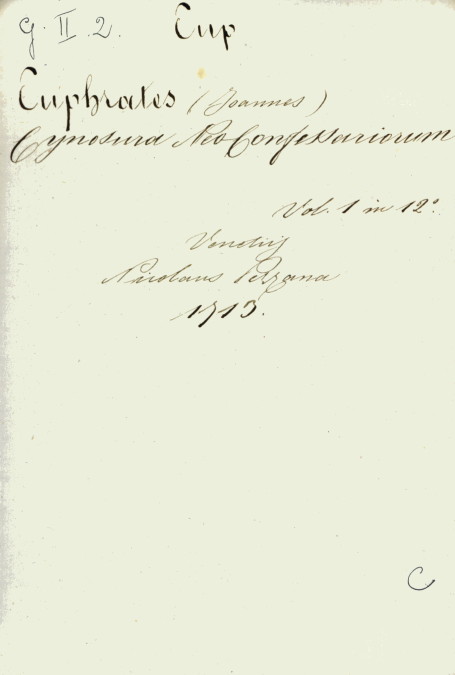 G. II. 2. Eup
Euphrates (Joannes)
Cynosura Neo Confessariorum
Vol. 1 in 12º.
Venetiis
Nicolaus Pezzana
1713.
C